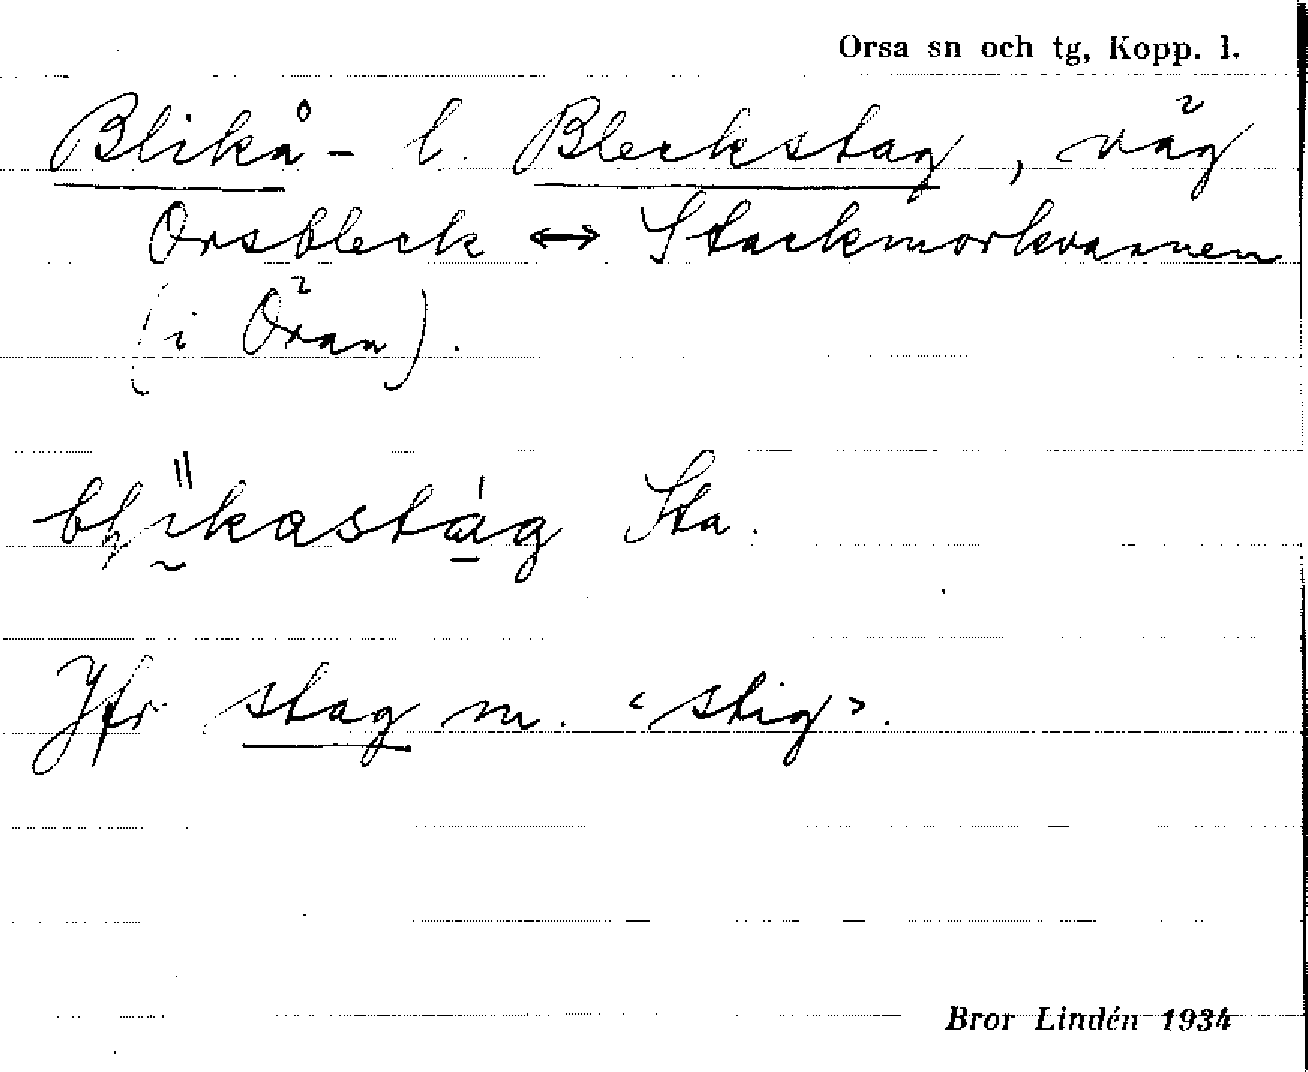 Orsa sn och tg, Kopp. l.
Blikå- l. Bleckstag, väg
Orsbleck ↔ Stackmorkvarnen
(i Öran).
Sta.
Jfr stag m. ‹stig›.
Bror Lindén 1934